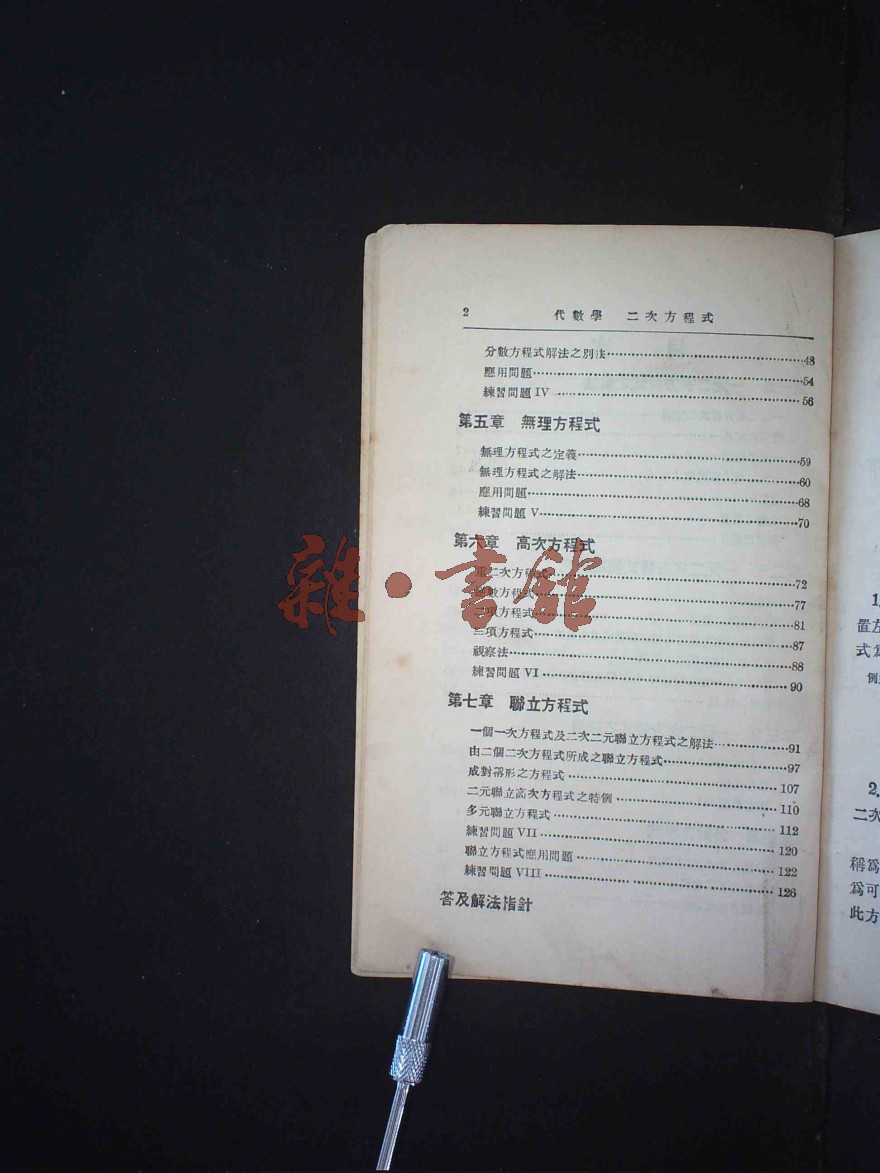 2 代數學 二次方程式
分數方程式解法之別法 48
應用問題 54
練習問題 IV 56
第五章 無理方程式
無理方程式之定義 59
無理方程式之解法 60
應用問題 68
練習問題 V 70
第六章 高次方程式
重二次方程式 72
數方程式 77
項方程式 81
三項方程式 87
觀察法 88
練習問題 VI 90
第七章 聯立方程式
一個一次方程式及二次二元聯立方程式之解法 91
由二個二次方程式所成之聯立方程式 97
成對稱形之方程式 107
二元聯立高次方程式之特例 110
多元聯立方程式 112
練習問題 VII 120
聯立方程式應用問題 122
練習問題 VIII 126
答及解法指針
雜·書館
1.
置左
式爲
例
2.
二次
稱爲
爲可
此方